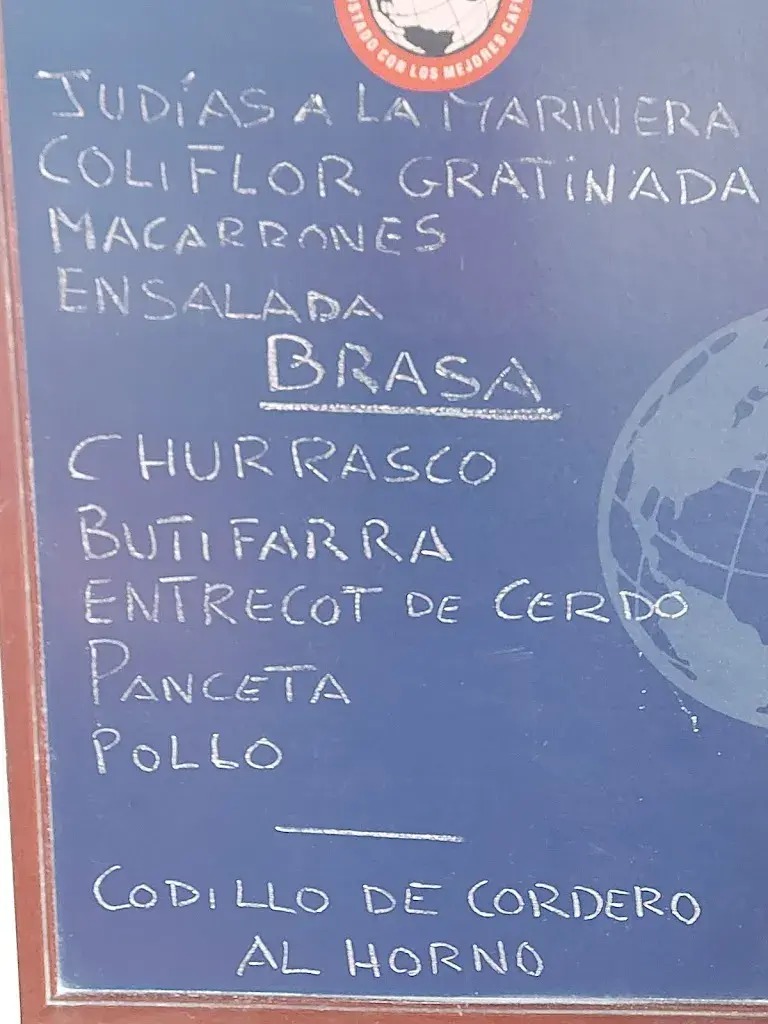 USTADO CON LOS MEJORES CAFÉ
JUDÍAS A LA MARINERA
COLIFLOR GRATINADA
MACARRONES
ENSALADA
BRASA
CHURRASCO
BUTIFARRA
ENTRECOT DE CERDO
PANCETA
POLLO
CODILLO DE CORDERO
AL HORNO